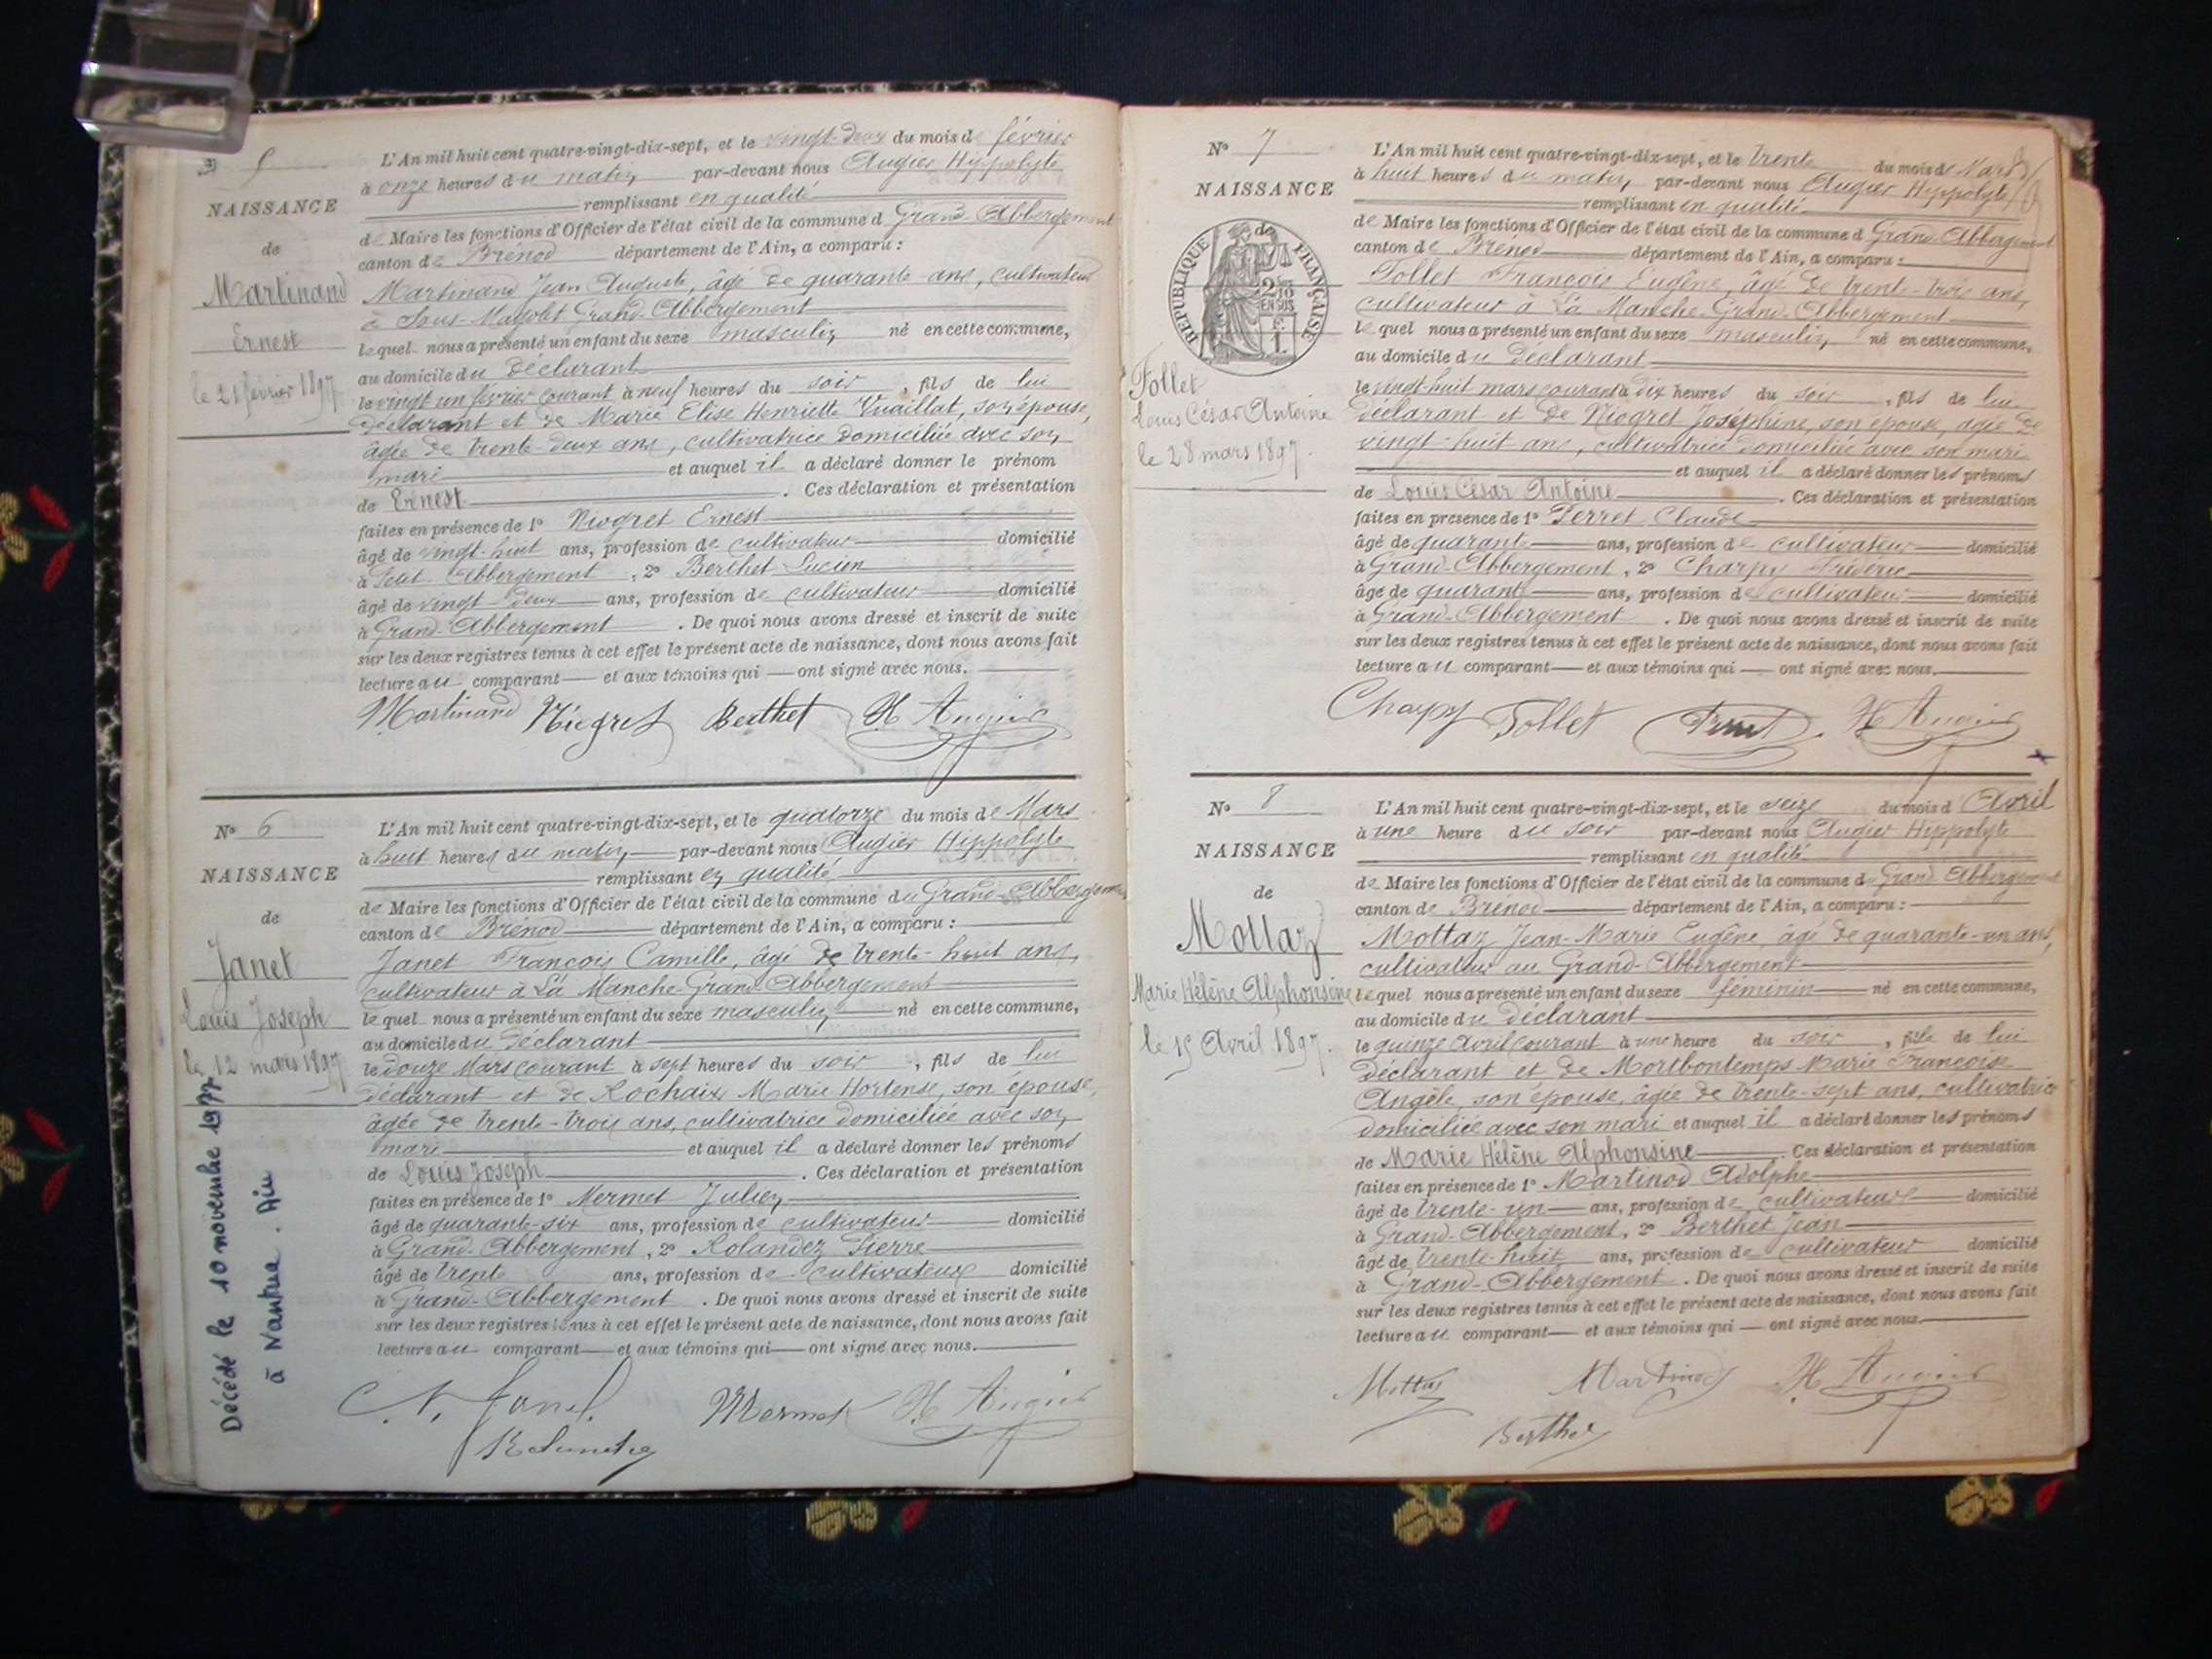 5
NAISSANCE
de
Martinand
Ernest
le 21 février 1897.
L'An mil huit cent quatre-vingt-dix-sept, et le vingt-deux du mois de février
à onze heures du matin par-devant nous Augier Hippolyte
remplissant en qualité
de Maire les fonctions d'Officier de l'état civil de la commune d Grand-Abbergement
canton de Brénod département de l'Ain, a comparu :
Martinand Jean Auguste, âgé de quarante ans, cultivateur
à Grand-Abbergement
lequel nous a présenté un enfant du sexe masculin né en cette commune,
au domicile du déclarant
le vingt un février courant à neuf heures du soir, fils de lui
déclarant et de Marie Elise Henriette Vuaillat, son épouse,
âgée de trente-deux ans, cultivatrice domiciliée avec son
mari et auquel il a déclaré donner le prénom
de Ernest. Ces déclaration et présentation
faites en présence de 1° Niogret Ernest
âgé de vingt-huit ans, profession de cultivateur domicilié
à Petit-Abbergement, 2° Berthet Lucien
âgé de vingt-deux ans, profession de cultivateur domicilié
à Grand-Abbergement. De quoi nous avons dressé et inscrit de suite
sur les deux registres tenus à cet effet le présent acte de naissance, dont nous avons fait
lecture au comparant et aux témoins qui ont signé avec nous.
Martinand Niogret Berthet H Augier
N° 6
NAISSANCE
de
Janet
Louis Joseph
le 12 mars 1897
Décédé le 10 novembre 1977
à Nantua. Ain
L'An mil huit cent quatre-vingt-dix-sept, et le quatorze du mois de Mars
à huit heures du matin par-devant nous Augier Hippolyte
remplissant en qualité
de Maire les fonctions d'Officier de l'état civil de la commune du Grand-Abbergement
canton de Brénod département de l'Ain, a comparu :
Janet François Camille, âgé de trente-huit ans,
cultivateur à La Manche-Grand-Abbergement
lequel nous a présenté un enfant du sexe masculin né en cette commune,
au domicile du déclarant
le douze Mars courant à sept heures du soir, fils de lui
déclarant et de Rochaix Marie Hortense, son épouse,
âgée de trente-trois ans, cultivatrice domiciliée avec son
mari et auquel il a déclaré donner les prénoms
de Louis Joseph. Ces déclaration et présentation
faites en présence de 1° Mermet Julien
âgé de quarante-six ans, profession de cultivateur domicilié
à Grand-Abbergement, 2° Rolandez Pierre
âgé de trente ans, profession de cultivateur domicilié
à Grand-Abbergement. De quoi nous avons dressé et inscrit de suite
sur les deux registres tenus à cet effet le présent acte de naissance, dont nous avons fait
lecture au comparant et aux témoins qui ont signé avec nous.
Janet Mermet H Augier
N° 7
NAISSANCE
de
RÉPUBLIQUE FRANÇAISE
2/10 EN SUS
Follet
Louis César Antoine
le 28 mars 1897.
L'An mil huit cent quatre-vingt-dix-sept, et le trente du mois de Mars
à huit heures du matin par-devant nous Augier Hippolyte
remplissant en qualité
de Maire les fonctions d'Officier de l'état civil de la commune d Grand-Abbergement
canton de Brénod département de l'Ain, a comparu :
Follet François Eugène, âgé de trente-trois ans,
cultivateur à La Manche-Grand-Abbergement
lequel nous a présenté un enfant du sexe masculin né en cette commune,
au domicile du déclarant
le vingt-huit mars courant à dix heures du soir, fils de lui
déclarant et de Niogret Joséphine, son épouse, âgée de
vingt-huit ans, cultivatrice domiciliée avec son mari
et auquel il a déclaré donner les prénoms
de Louis César Antoine. Ces déclaration et présentation
faites en présence de 1° Perret Claude
âgé de quarante ans, profession de cultivateur domicilié
à Grand-Abbergement, 2° Charpy Fréderic
âgé de quarante ans, profession de cultivateur domicilié
à Grand-Abbergement. De quoi nous avons dressé et inscrit de suite
sur les deux registres tenus à cet effet le présent acte de naissance, dont nous avons fait
lecture au comparant et aux témoins qui ont signé avec nous.
Charpy Follet Perret H Augier
N° 8
NAISSANCE
de
Mottaz
Marie Hélène Alphonsine
le 15 Avril 1897.
L'An mil huit cent quatre-vingt-dix-sept, et le seize du mois d Avril
à une heure du soir par-devant nous Augier Hippolyte
remplissant en qualité
de Maire les fonctions d'Officier de l'état civil de la commune du Grand Abbergement
canton de Brénod département de l'Ain, a comparu :
Mottaz Jean-Marie Eugène, âgé de quarante-un ans,
cultivateur au Grand-Abbergement
lequel nous a présenté un enfant du sexe féminin né en cette commune,
au domicile du déclarant
le quinze Avril courant à une heure du soir, fille de lui
déclarant et de Mortbontemps Marie Françoise
Angèle, son épouse, âgée de trente-sept ans, cultivatrice
domiciliée avec son mari et auquel il a déclaré donner les prénoms
de Marie Hélène Alphonsine. Ces déclaration et présentation
faites en présence de 1° Martinod Adolphe
âgé de trente-un ans, profession de cultivateur domicilié
à Grand-Abbergement, 2° Berthet Jean
âgé de trente-huit ans, profession de cultivateur domicilié
à Grand-Abbergement. De quoi nous avons dressé et inscrit de suite
sur les deux registres tenus à cet effet le présent acte de naissance, dont nous avons fait
lecture au comparant et aux témoins qui ont signé avec nous.
Mottaz Martinod H Augier
Berthet